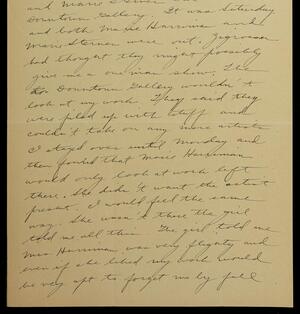 and Marie
Downtown Gallery. It was Saturday
and both Marie Harriman and
Marie Sterner were out. Zigrosser
had thought they might possibly
give me a one man show. The
Downtown Gallery wouldn't
look at my work. They said they
were filed up with stuff and
couldn't take on any more artists.
I stayed over until Monday and
then found that Marie Harriman
would only look at work left
there. She didn't want the artist
present. I would feel the same
way. She wasn't there the girl
told me all this. The girl told me
Mrs Harriman was very flighty and
even if she liked my work would
be very apt to forget me by fall